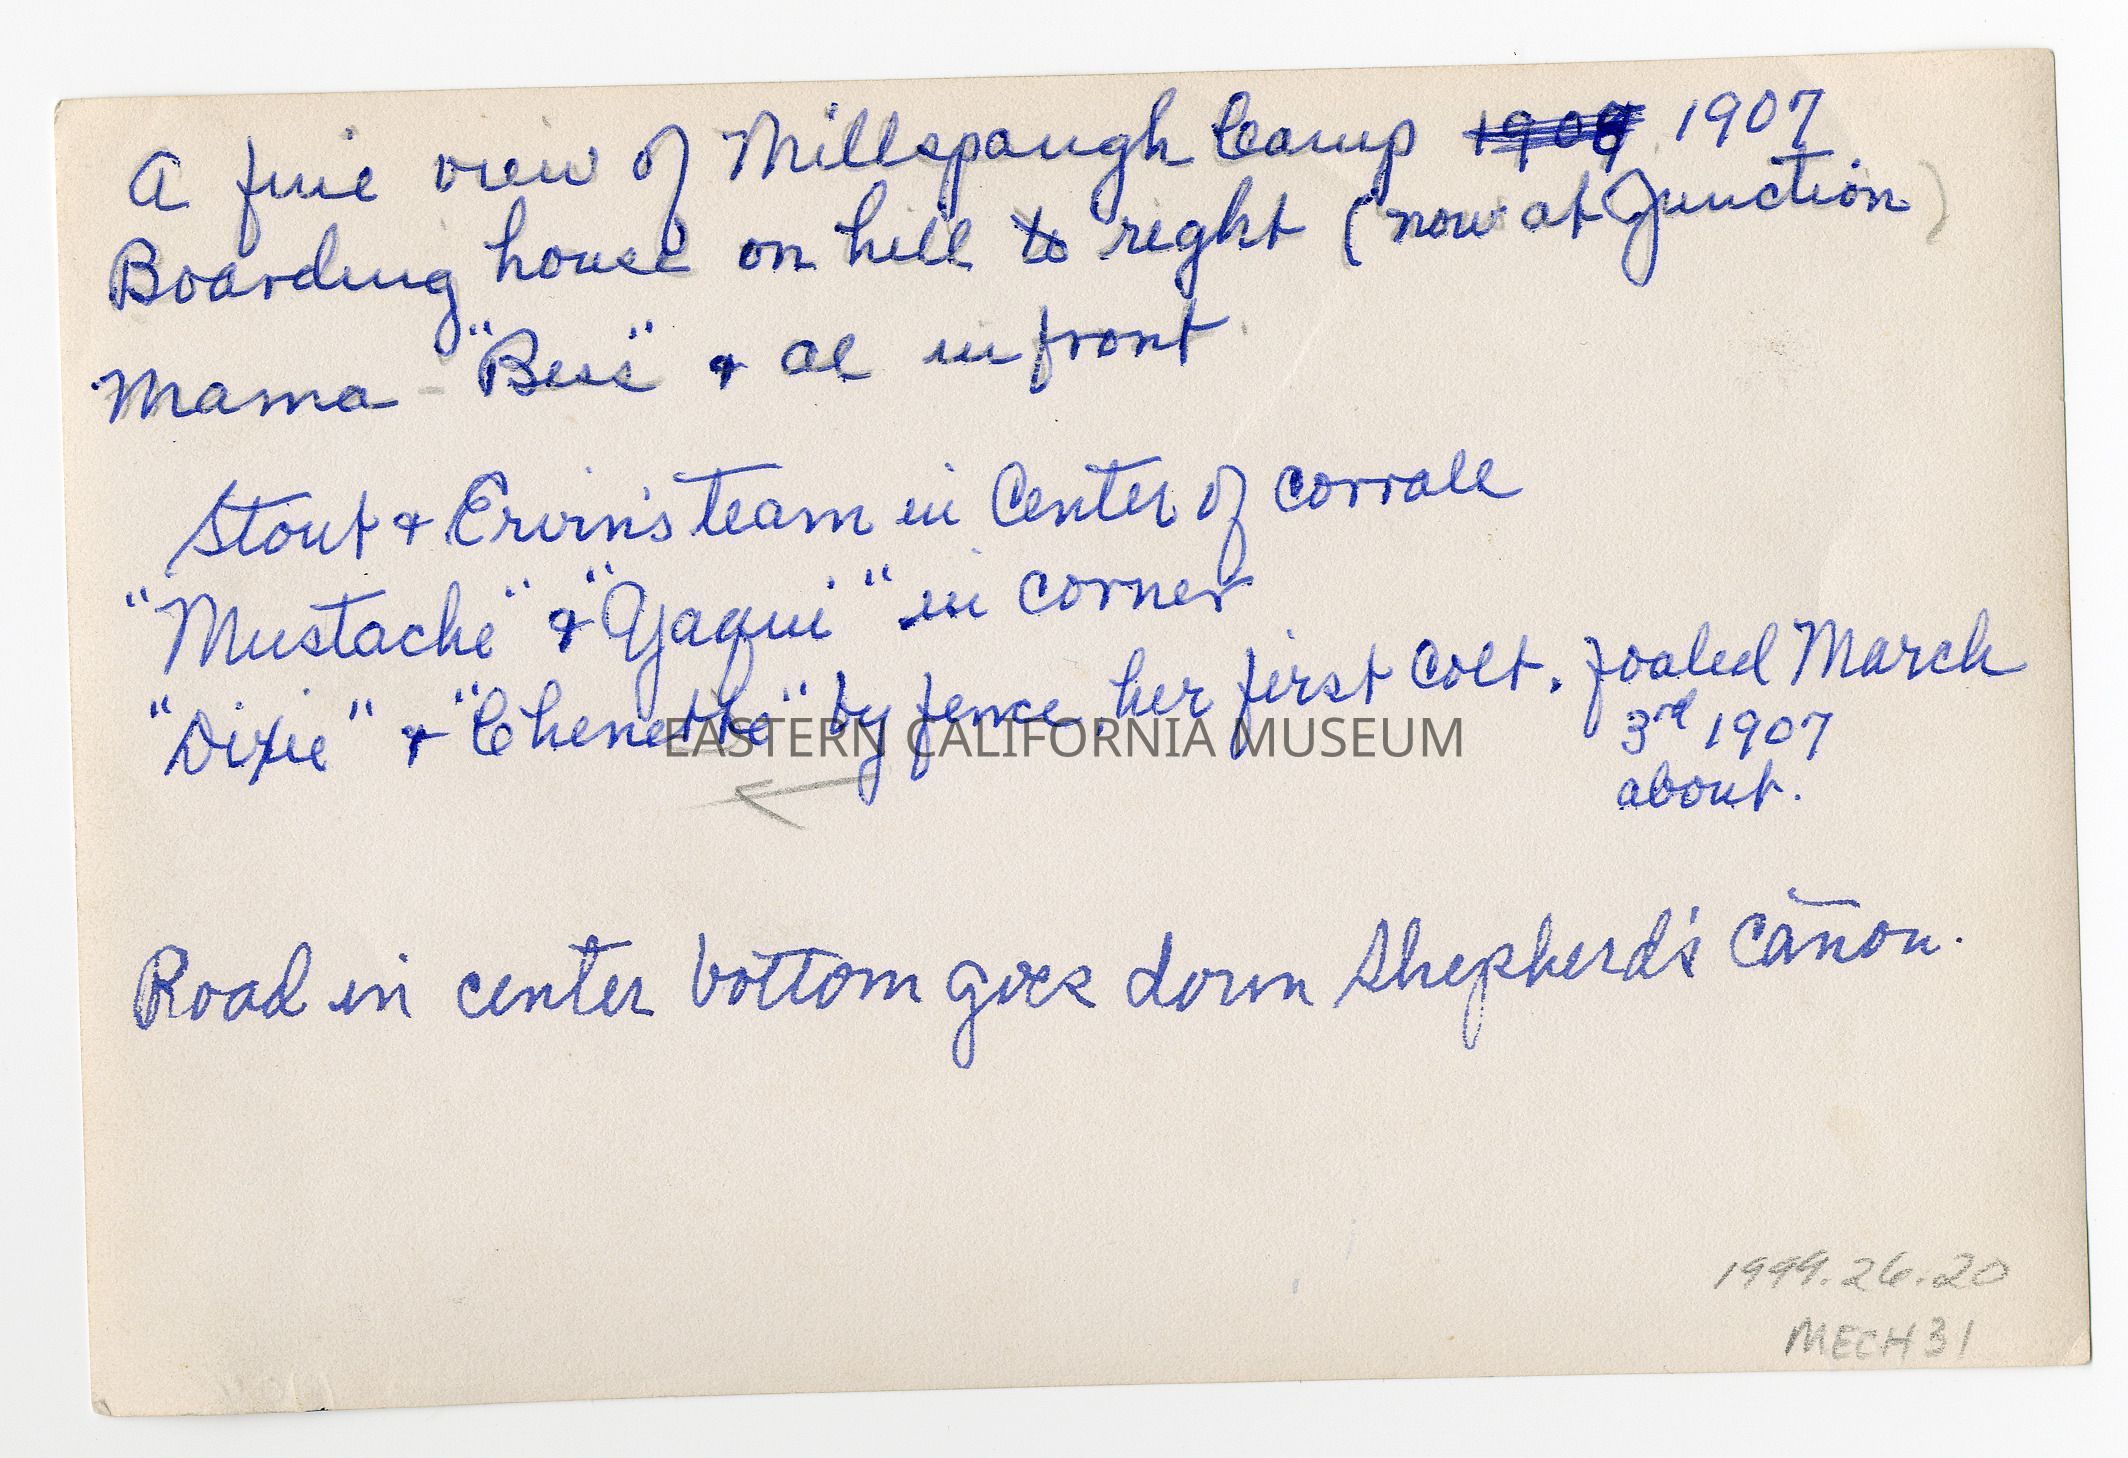 A fine view of Millspaugh Camp 1907
Boarding house on hill to right (now at Junction)
Mama - "Bess" & Al in front
Stout & Ervin's team in Center of corrale
"Mustache" & "Yaqui" in corner
"Dixie" & "Chenette" by fence, her first Colt. foaled March
3rd 1907
about.
EASTERN CALIFORNIA MUSEUM
Road in center bottom goes down Shepherd's Cañon.
1999.26.20
MECH31